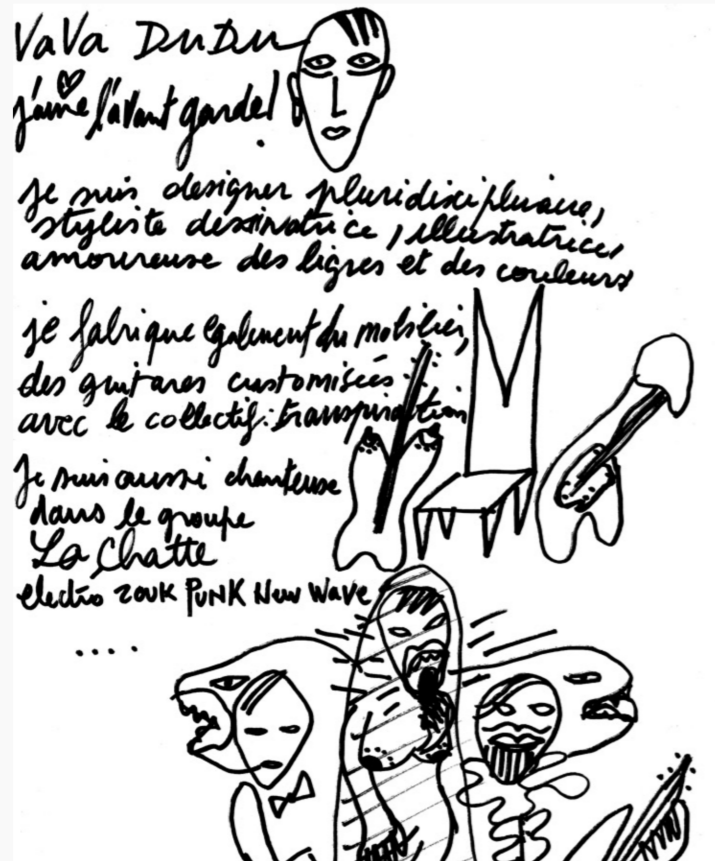 VaVa DuDu
j'aime l'avant garde!
je suis designer pluridisciplinaire,
styliste dessinatrice, illustratrice,
amoureuse des lignes et des couleurs
je fabrique egalement du mobilier,
des guitares customisées
avec le collectif: transpiraction
Je suis aussi chanteuse
dans le groupe
La Chatte
electro zouk PUNK New Wave
....